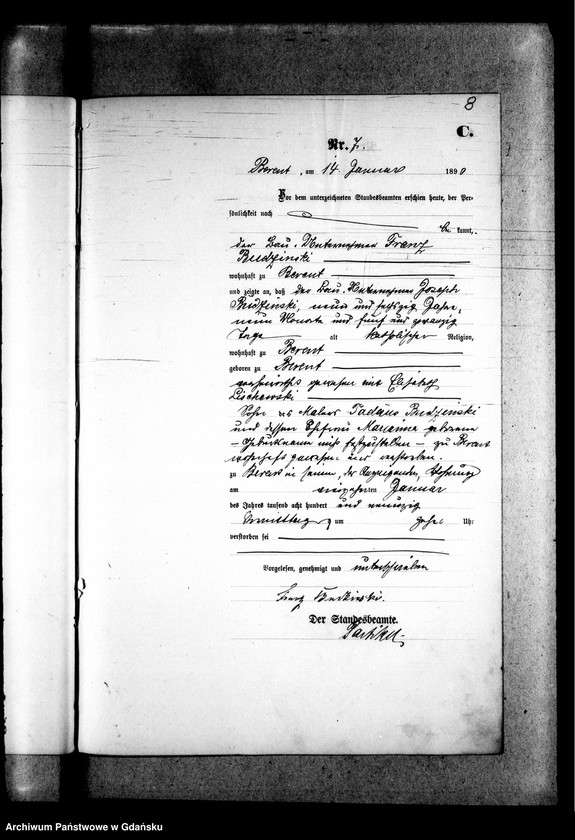 8
C.
Nr. 7.
Berent, am 14 Januar 1890
Vor dem unterzeichneten Standesbeamten erschien heute, der Per-
sönlichkeit nach
be kannt,
der Bau-Unternehmer Franz
Budzinski
wohnhaft zu Berent
und zeigte an, daß der Bau-Unternehmer Joseph
Budzinski, neun und sechszig Jahre,
neun Monate und fünf und zwanzig
Tage alt katholischer Religion,
wohnhaft zu Berent
geboren zu Berent
verheirathet gewesen mit Elisabeth
Lischewski
Sohn des Malers Tadäus Budzinski
und dessen Ehefrau Marianna geborene
– Geburtsname nicht festzustellen – zu Berent
wohnhaft gewesen und verstorben.
zu Berent in seiner, des Anzeigenden, Wohnung
am vierzehnten Januar
des Jahres tausend acht hundert und neunzig
Vormittags um Uhr
verstorben sei
Vorgelesen, genehmigt und unterschrieben
Franz Budzinski.
Der Standesbeamte.
Archiwum Państwowe w Gdańsku